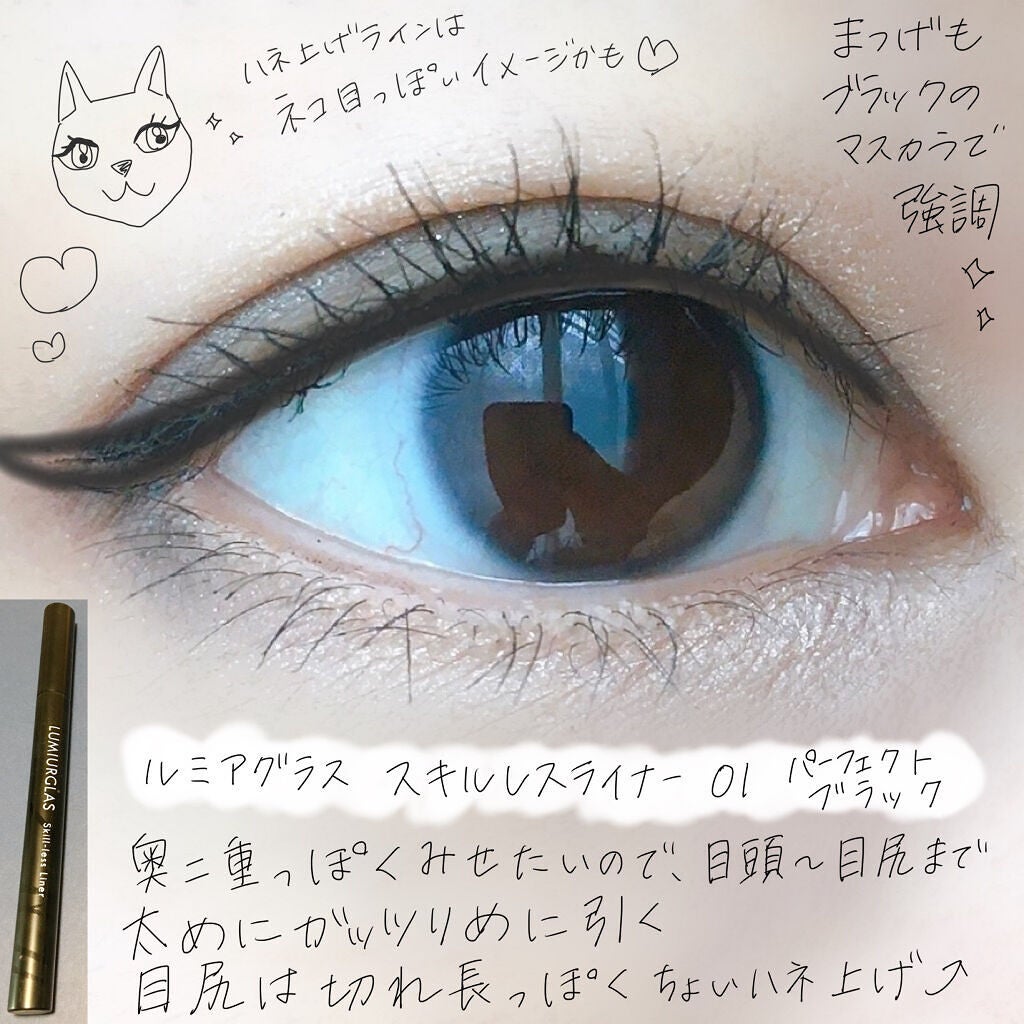 ハネ上げラインは
ネコ目っぽいイメージかも♡
まつげも
ブラックの
マスカラで
強調
LUMIURGLAS Skill-less Liner
ルミアグラス スキルレスライナー 01 パーフェクト
ブラック
奥二重っぽくみせたいので、目頭〜目尻まで
太めにガッツリめに引く
目尻は切れ長っぽくちょいハネ上げ⤴